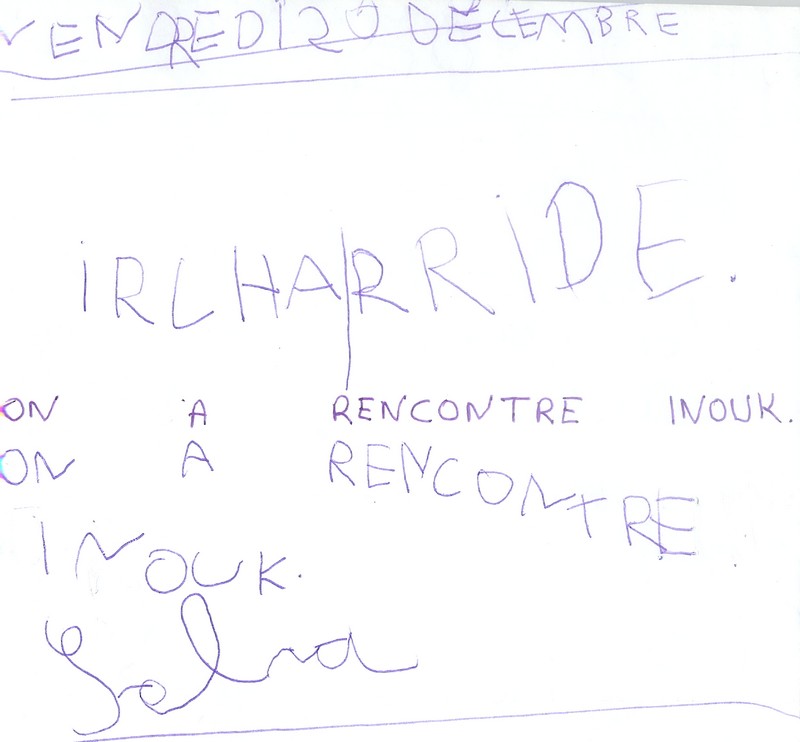 VENDREDI 20 DÉCEMBRE
IRLHARRIDE.
ON A RENCONTRE INOUK.
ON A RENCONTRE
INOUK.
Selna